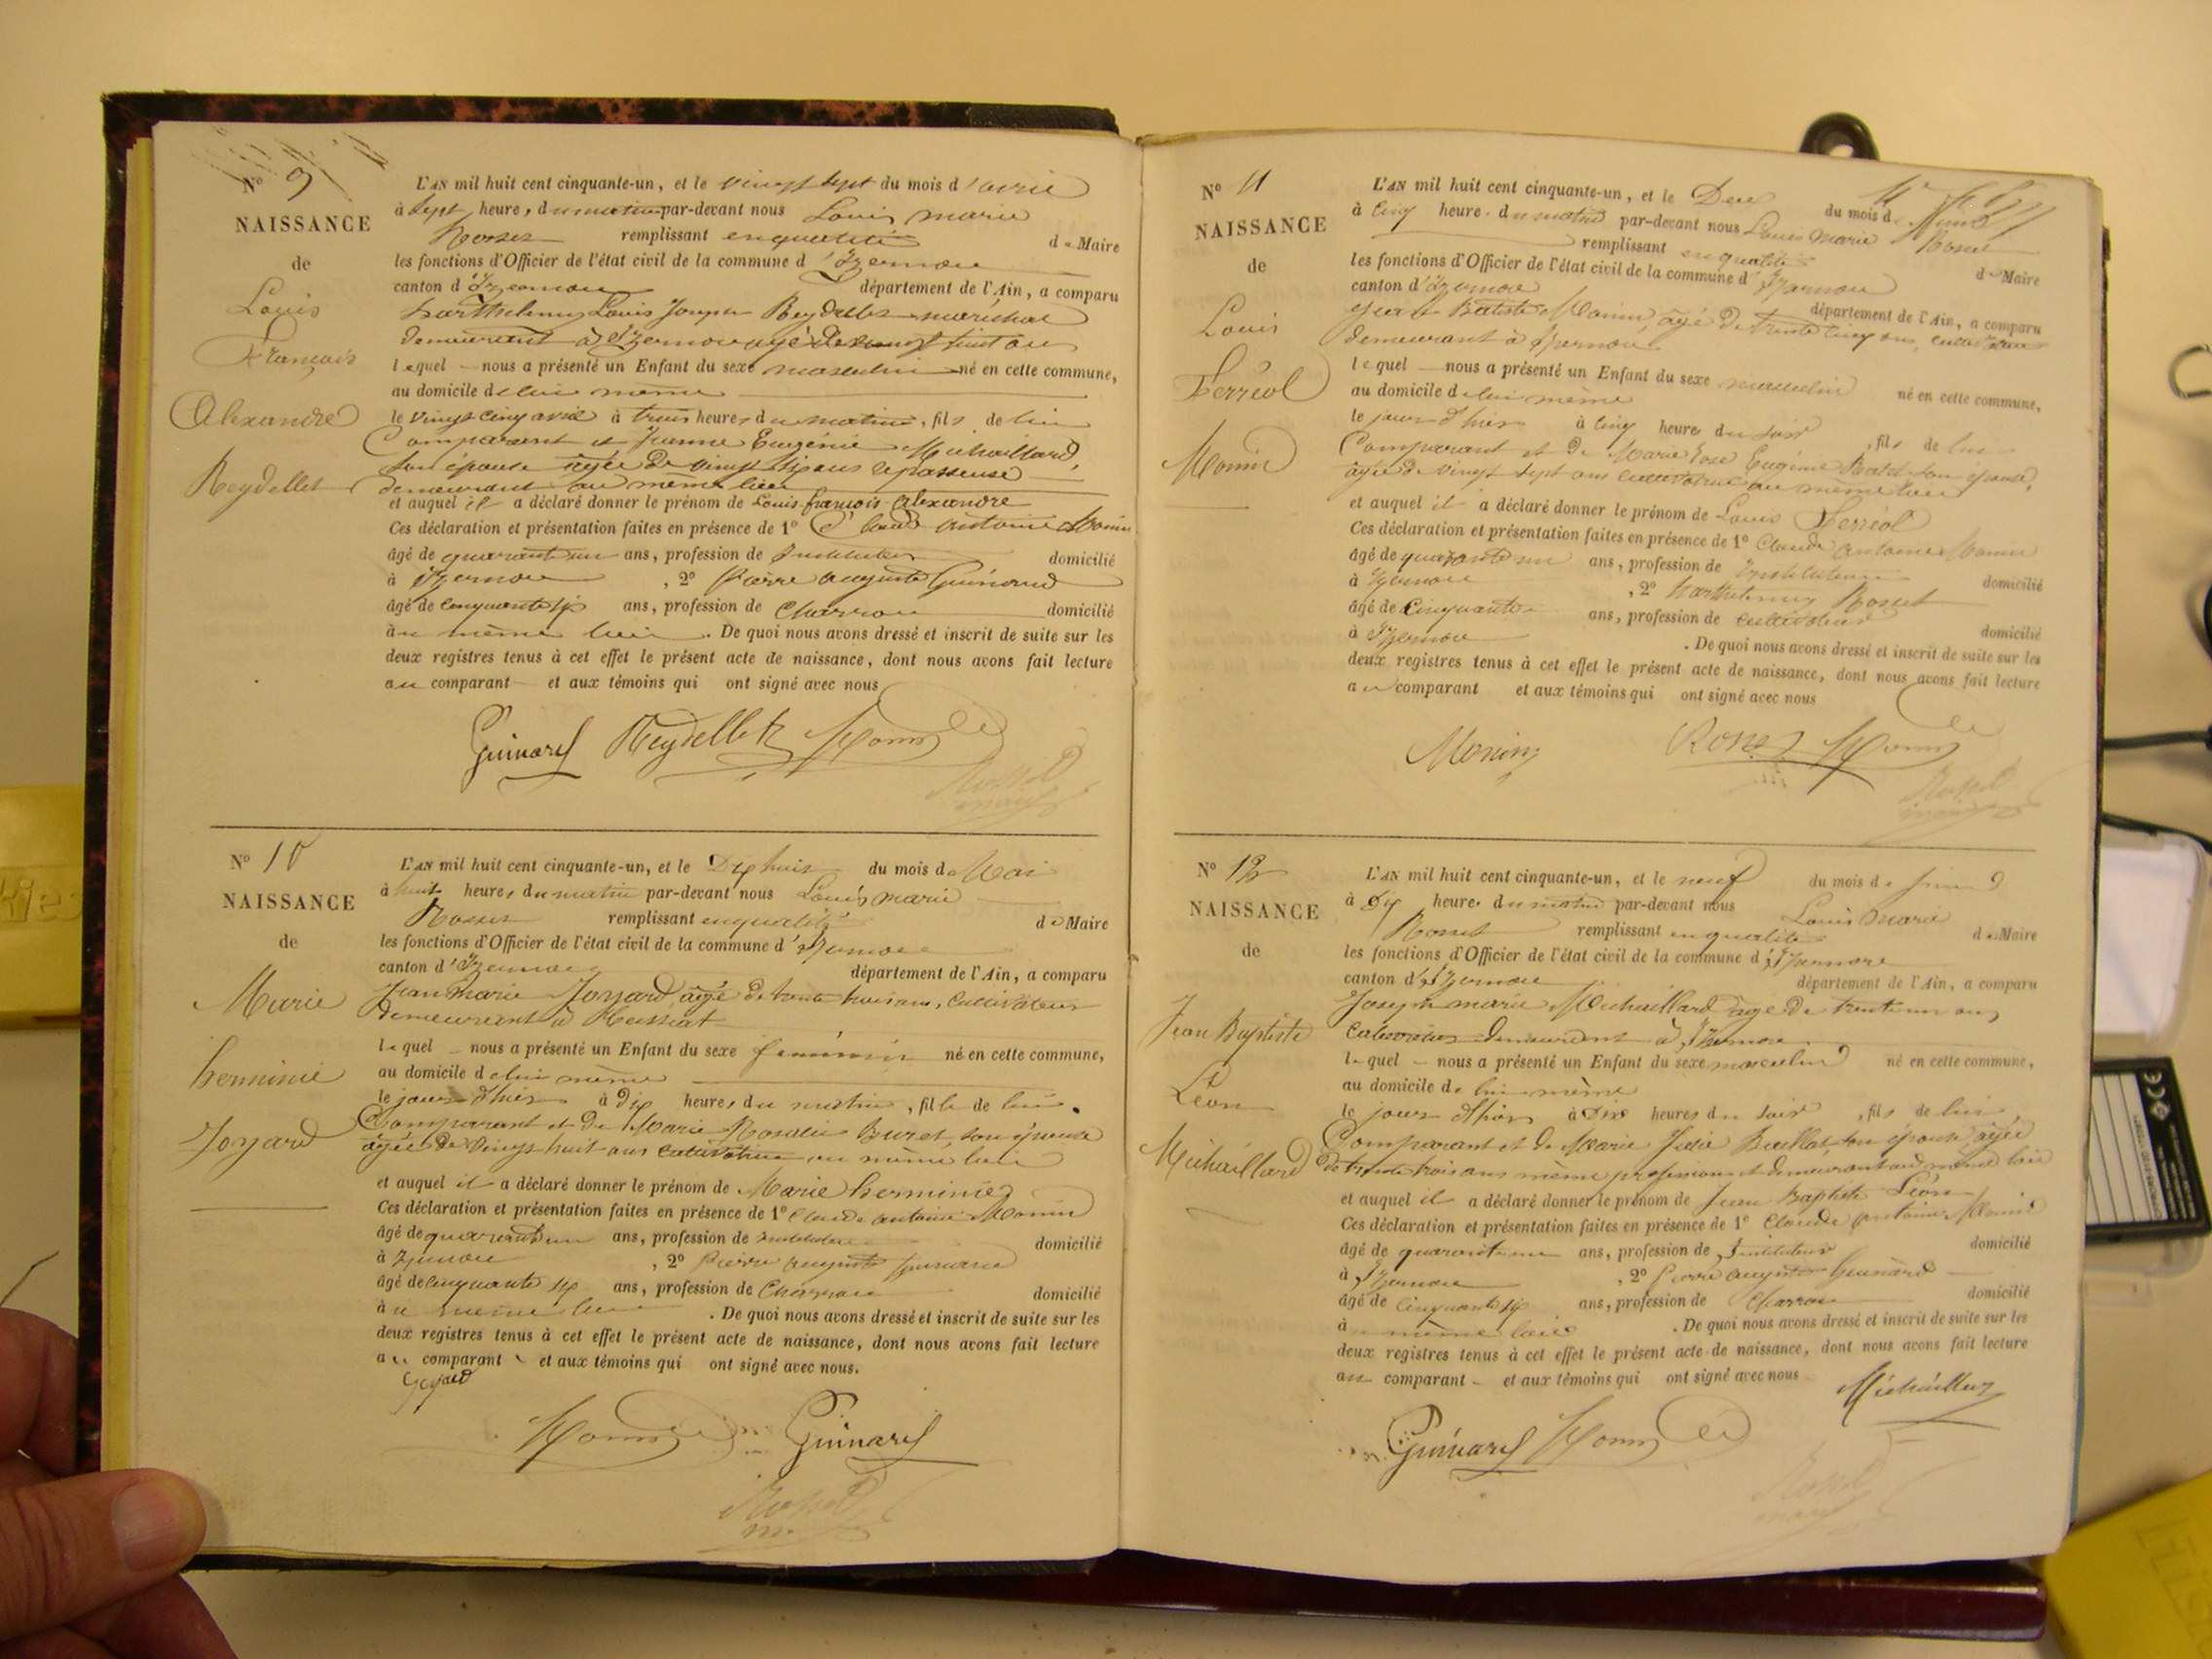 N° 9
NAISSANCE
de
Louis
François
Alexandre
Reydellet
L'AN mil huit cent cinquante-un, et le vingt sept du mois d'avril
à sept heures du matin par-devant nous Louis marie
Rosset remplissant en qualité de Maire
les fonctions d'Officier de l'état civil de la commune d'Izernore
canton d'Izernore département de l'Ain, a comparu
Barthelemy Louis Joseph Reydellet maréchal
demeurant à Izernore agé de vingt huit ans
lequel nous a présenté un Enfant du sexe masculin né en cette commune,
au domicile de lui même
le vingt cinq avril à trois heures du matin, fils de lui
Comparant et Jeanne Eugénie Michaillard,
son épouse agée de vingt six ans repasseuse
demeurant au même lieu
et auquel il a déclaré donner le prénom de Louis françois Alexandre
Ces déclaration et présentation faites en présence de 1° Claude antoine Monin
âgé de quarante un ans, profession de Instituteur domicilié
à Izernore, 2° Pierre auguste Guinard
âgé de cinquante six ans, profession de Charron domicilié
au même lieu. De quoi nous avons dressé et inscrit de suite sur les
deux registres tenus à cet effet le présent acte de naissance, dont nous avons fait lecture
au comparant et aux témoins qui ont signé avec nous
Guinard Reydellet Monin
Rosset
maire
N° 10
NAISSANCE
de
Marie
herminie
Joyard
L'AN mil huit cent cinquante-un, et le Dix huit du mois de Mai
à huit heures du matin par-devant nous Louis marie
Rosset remplissant en qualité de Maire
les fonctions d'Officier de l'état civil de la commune d'Izernore
canton d'Izernore département de l'Ain, a comparu
Jean marie Joyard âgé de trente trois ans, Cultivateur
demeurant à
lequel nous a présenté un Enfant du sexe féminin né en cette commune,
au domicile de lui même
le jour d'hier à dix heures du matin, fille de lui
Comparant et de Marie Rosalie Buret, son épouse
agée de vingt huit ans cultivatrice au même lieu
et auquel il a déclaré donner le prénom de Marie herminie
Ces déclaration et présentation faites en présence de 1° Claude antoine Monin
âgé de quarante un ans, profession de instituteur domicilié
à Izernore, 2° Pierre auguste Guinard
âgé de cinquante six ans, profession de Charron domicilié
au même lieu. De quoi nous avons dressé et inscrit de suite sur les
deux registres tenus à cet effet le présent acte de naissance, dont nous avons fait lecture
au comparant et aux témoins qui ont signé avec nous.
Joyard
Monin Guinard
Rosset
N° 11
NAISSANCE
de
Louis
Ferréol
Monin
L'AN mil huit cent cinquante-un, et le Deux du mois de Juin
à Cinq heures du matin par-devant nous Louis Marie Rosset
remplissant en qualité de Maire
les fonctions d'Officier de l'état civil de la commune d'Izernore
canton d'Izernore département de l'Ain, a comparu
Jean Batiste Monin, âgé de trente cinq ans, cultivateur
demeurant à Izernore
lequel nous a présenté un Enfant du sexe masculin né en cette commune,
au domicile de lui même
le jour d'hier à cinq heures du soir, fils de lui
Comparant et de Marie Rose Eugénie son épouse,
agée de vingt sept ans cultivatrice au même lieu
et auquel il a déclaré donner le prénom de Louis Ferréol
Ces déclaration et présentation faites en présence de 1° Claude antoine Monin
âgé de quarante un ans, profession de Instituteur domicilié
à Izernore, 2° Barthelemy Rosset
âgé de Cinquante ans, profession de cultivateur domicilié
à Izernore. De quoi nous avons dressé et inscrit de suite sur les
deux registres tenus à cet effet le présent acte de naissance, dont nous avons fait lecture
au comparant et aux témoins qui ont signé avec nous
Monin Rosset Monin
Rosset
maire
N° 12
NAISSANCE
de
Jean Baptiste
Léon
Michaillard
L'AN mil huit cent cinquante-un, et le neuf du mois de Juin
à Dix heures du matin par-devant nous Louis Marie
Rosset remplissant en qualité de Maire
les fonctions d'Officier de l'état civil de la commune d'Izernore
canton d'Izernore département de l'Ain, a comparu
Joseph marie Michaillard agé de trente un ans
cultivateur demeurant à Izernore
lequel nous a présenté un Enfant du sexe masculin né en cette commune,
au domicile de lui même
le jour d'hier à Dix heures du soir, fils de lui
Comparant et de Marie Julie Baillat, son épouse, agée
de trente trois ans même profession et demeurant au même lieu
et auquel il a déclaré donner le prénom de Jean Baptiste Léon
Ces déclaration et présentation faites en présence de 1° Claude Antoine Monin
âgé de quarante un ans, profession de Instituteur domicilié
à Izernore, 2° Pierre auguste Guinard
âgé de Cinquante six ans, profession de Charron domicilié
au même lieu. De quoi nous avons dressé et inscrit de suite sur les
deux registres tenus à cet effet le présent acte de naissance, dont nous avons fait lecture
au comparant et aux témoins qui ont signé avec nous
Michaillard
Guinard Monin
Rosset
maire